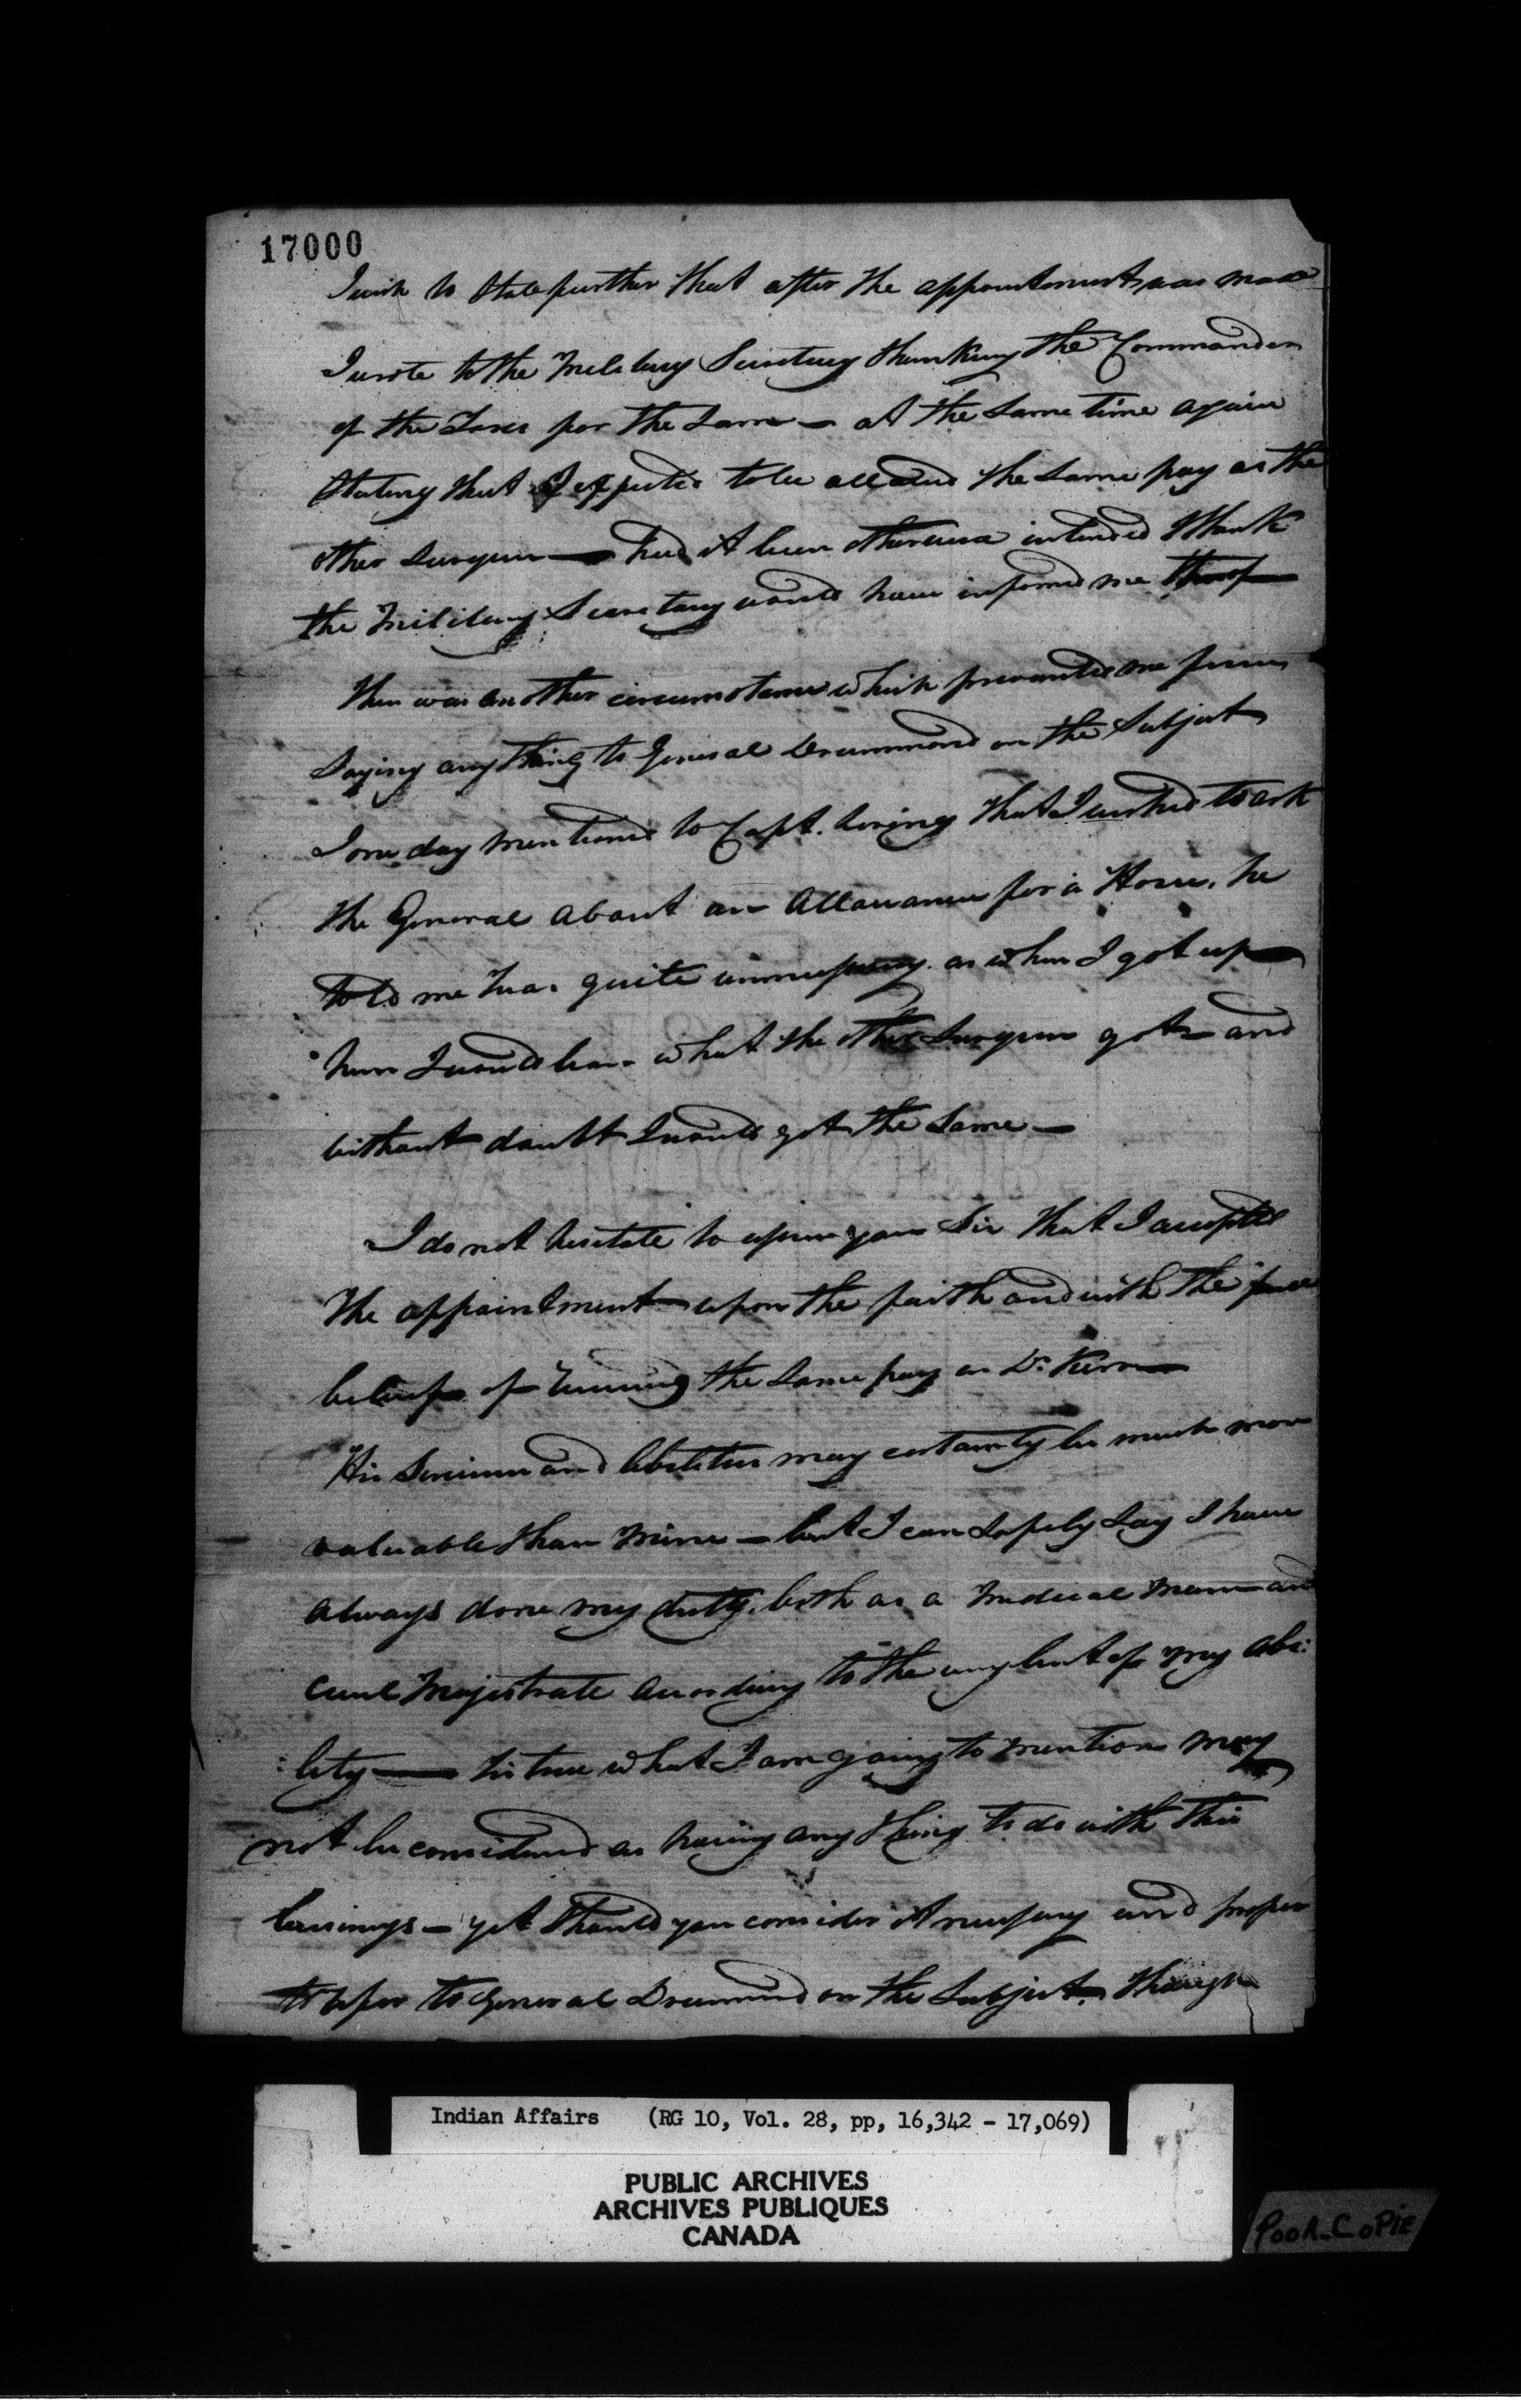 17000
I wish to State further that after the appointment was made
I wrote to the Military Secretary thanking the Commander
of the Forces for the Same — at the Same time again
Stating that I expected to be allowed the Same pay as the
other Surgeon — had it been otherwise intended I think
the Military Secretary would have informed me thereof
There was another circumstance which prevented me from
Saying any thing to General Drummond on the Subject
I one day mentioned to Capt. Loring that I wished to ask
the General about an Allowance for a Horse, he
told me twas quite unnecessary as when I got up
here I would learn what the other Surgeon got — and
without doubt I would get the Same —
I do not hesitate to you Sir that I accepted
the appointment upon the faith and with the full
belief of the Same pay as Dr. Kerr —
His Services and Abilities may certainly be much more
valuable than mine — but I can Safely Say I have
always done my duty, both as a Medical Man and
Civil Magistrate according to the very best of my abi:
:lity — tis true what I am going to mention may
not be considered as having any thing to do with this
business — yet Should you consider it necessary and proper
to refer to General Drummond on the Subject, though
Indian Affairs (RG 10, Vol. 28, pp, 16,342 - 17,069)
PUBLIC ARCHIVES
ARCHIVES PUBLIQUES
CANADA
POOR COPIE